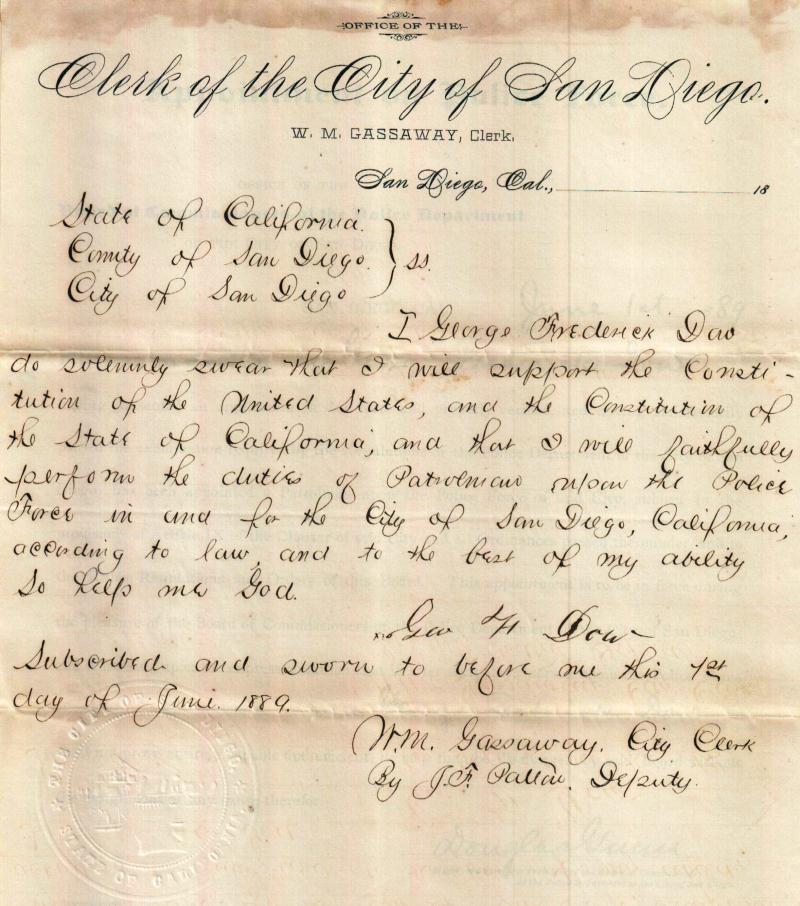 OFFICE OF THE
Clerk of the City of San Diego.
W. M. GASSAWAY, Clerk.
San Diego, Cal., 18
State of California.
County of San Diego. } ss.
City of San Diego
I George Frederick Dow
do solemnly swear that I will support the Consti-
tution of the United States, and the Constitution of
the State of California, and that I will faithfully
perform the duties of Patrolman upon the Police
Force in and for the City of San Diego, California,
according to law, and to the best of my ability
So help me God.
Geo F Dow
Subscribed and sworn to before me this 1st
day of June. 1889.
W.M. Gassaway. City Clerk
By J.F. Patton, Deputy.
STATE OF CALIFORNIA